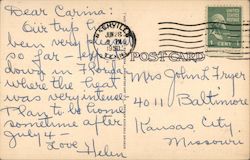 Dear Carina:
Our trip has
been very pleasant
so far - except
down in Florida
where the heat
was very intense
Plan to be home
sometime after
July 4 -
Love
Helen
NASHVILLE
JUN 28
POST CARD
1 CENT
Mrs John L Fryer
4011 Baltimore
Kansas City.
Missouri